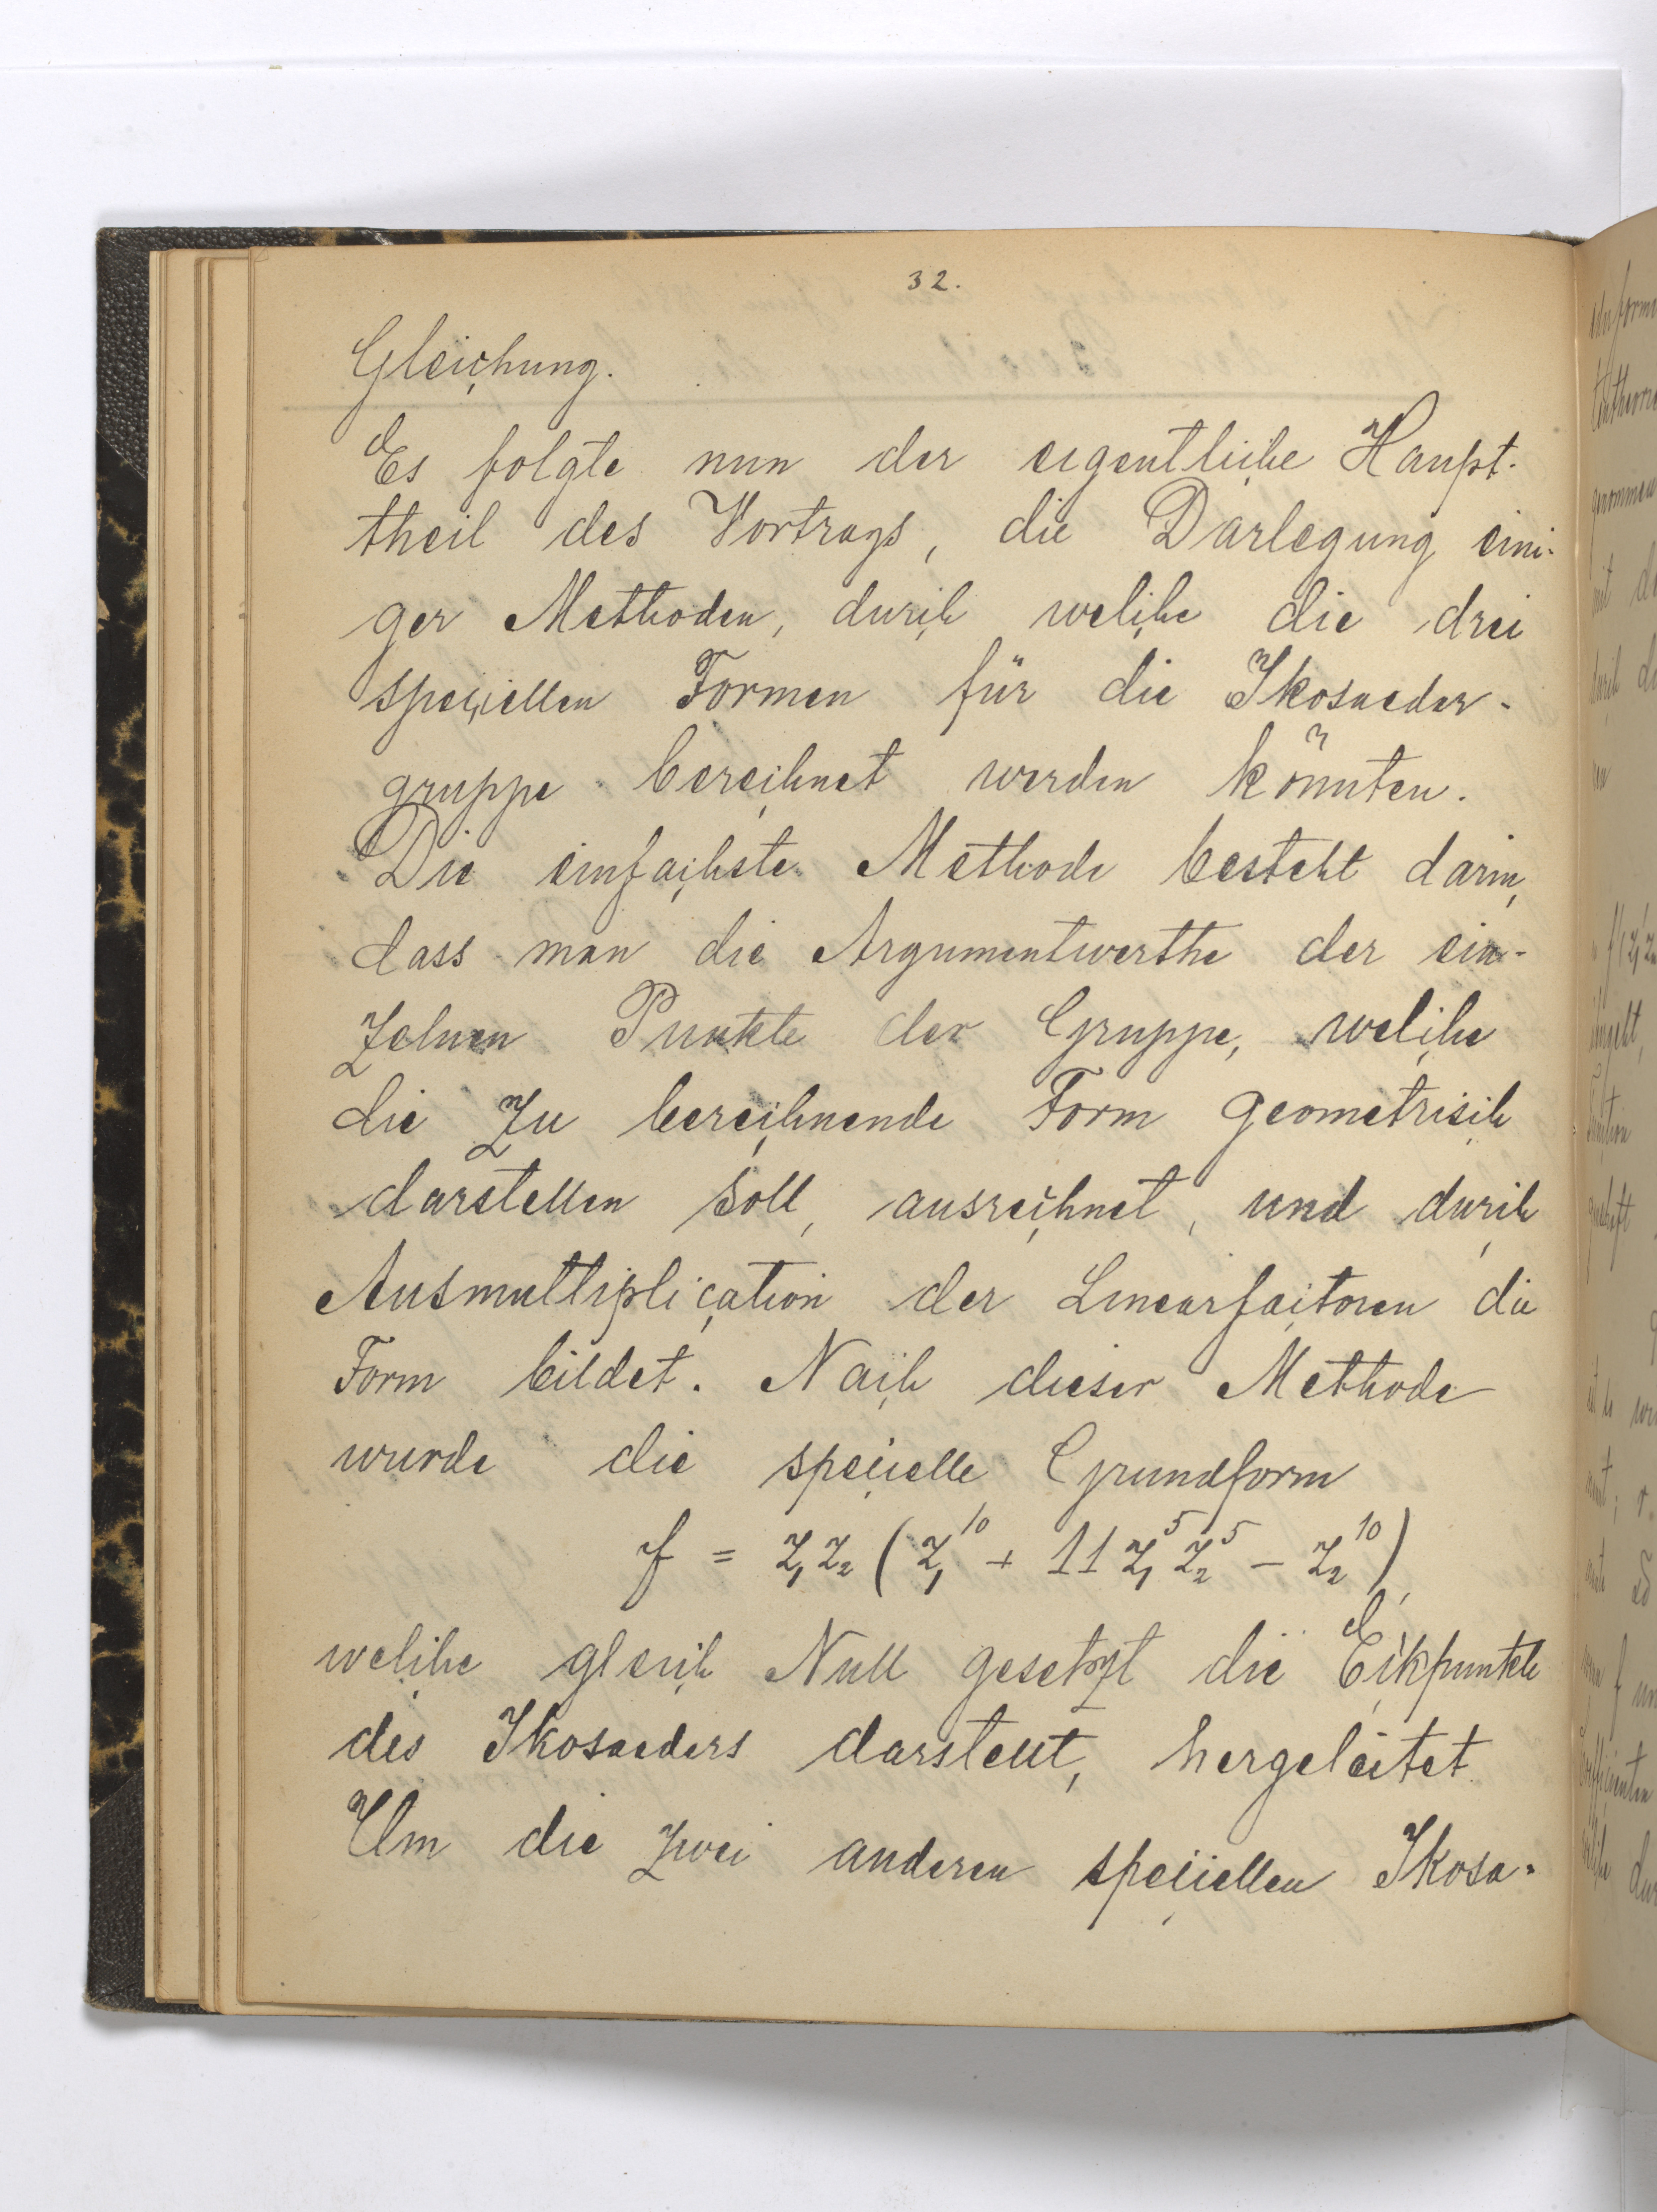 32.
Gleichung.
Es folgte nun der eigentliche Haupt-
theil des Vortrags, die Darlegung eini-
ger Methoden, durch welche die drei
speciellen Formen für die Ikosaeder-
gruppe berechnet werden könnten.
Die einfachste Methode besteht darin,
dass man die Argumentwerthe der ein-
zelnen Punkte der Gruppe, welche
die zu berechnende Form geometrisch
darstellen soll, ausrechnet, und durch
Ausmultiplication der Linearfactoren die
Form bildet. Nach dieser Methode
wurde die specielle Grundform
f = z₁z₂ (z₁¹⁰ + 11 z₁⁵ z₂⁵ – z₂¹⁰),
welche gleich Null gesetzt die Eckpunkte
des Ikosaeders darstellt, hergeleitet.
Um die zwei anderen speciellen Ikosa-